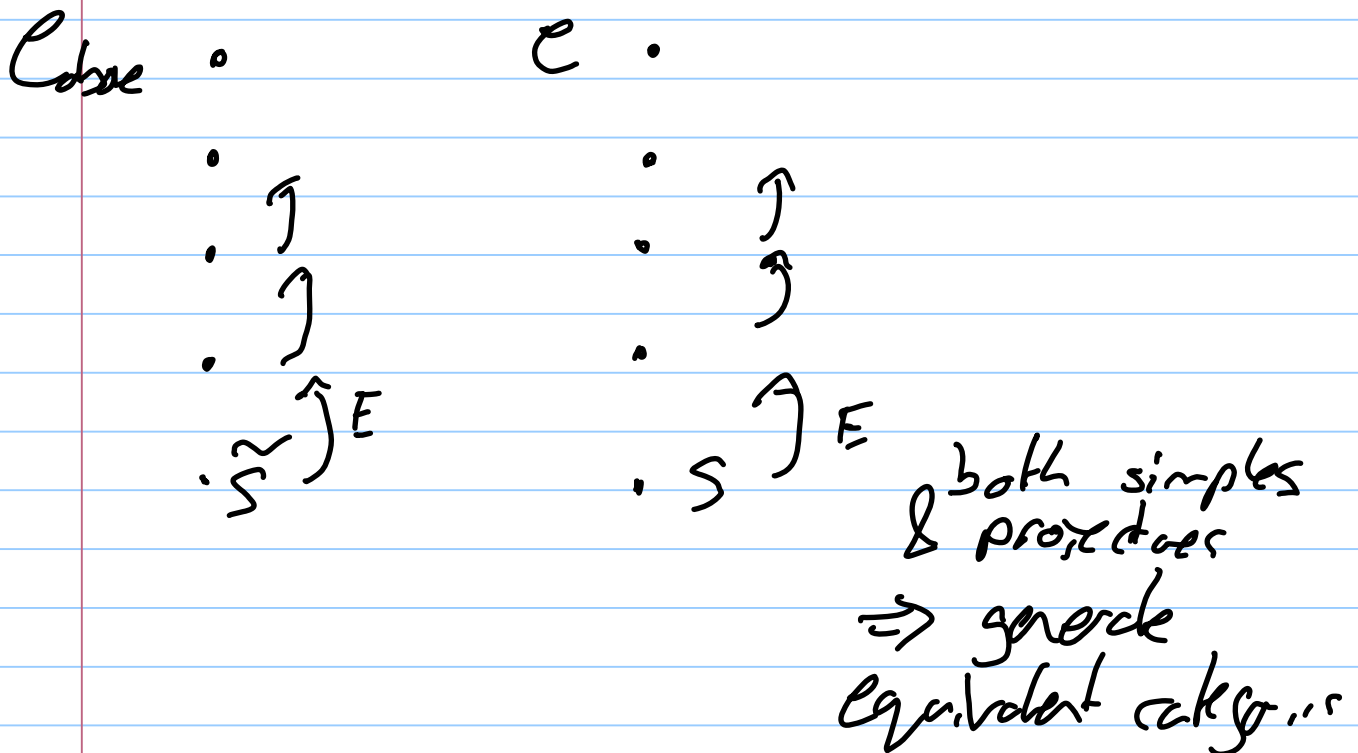 C above C
E E
S̃ S
both simples
& projectives
⇒ generate
equivalent categories